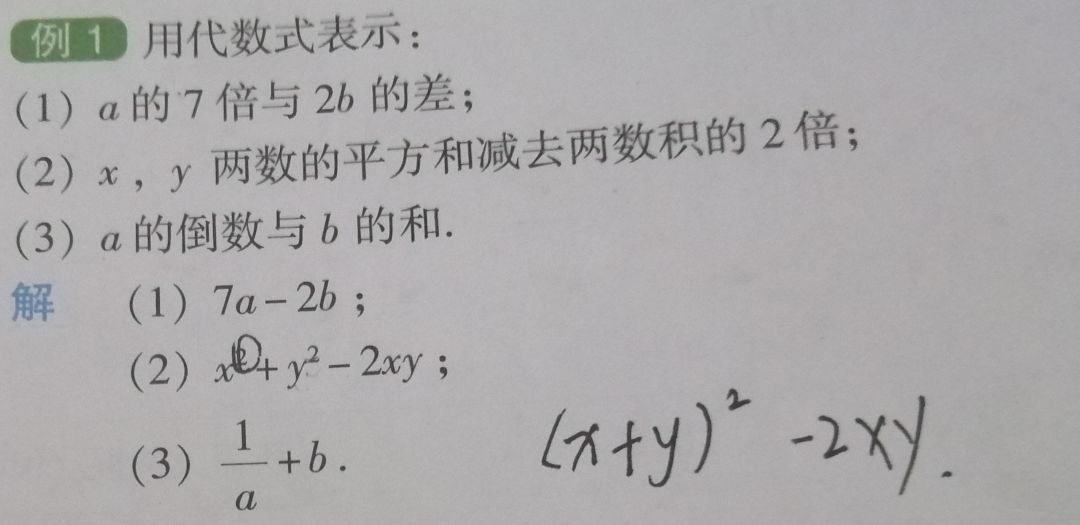 例 1 用代数式表示：
(1) a 的 7 倍与 2b 的差；
(2) x，y 两数的平方和减去两数积的 2 倍；
(3) a 的倒数与 b 的和.
解 (1) 7a－2b；
(2) x²＋y²－2xy；
(3) 1/a＋b.
(x+y)² -2xy.